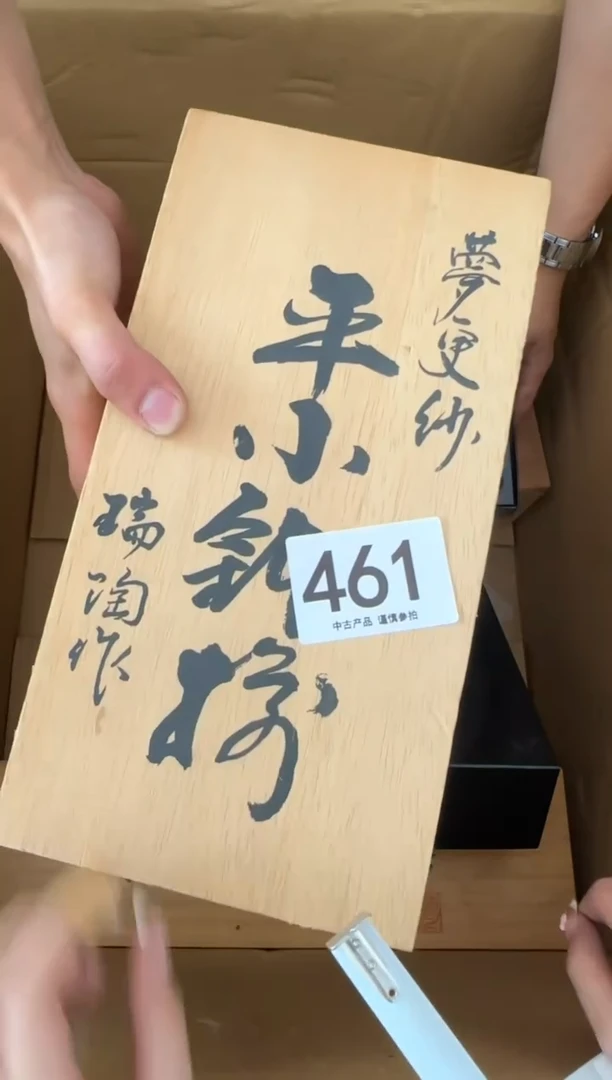 夢更紗
平小鉢揃
瑞陶作
461
中古产品 谨慎参拍